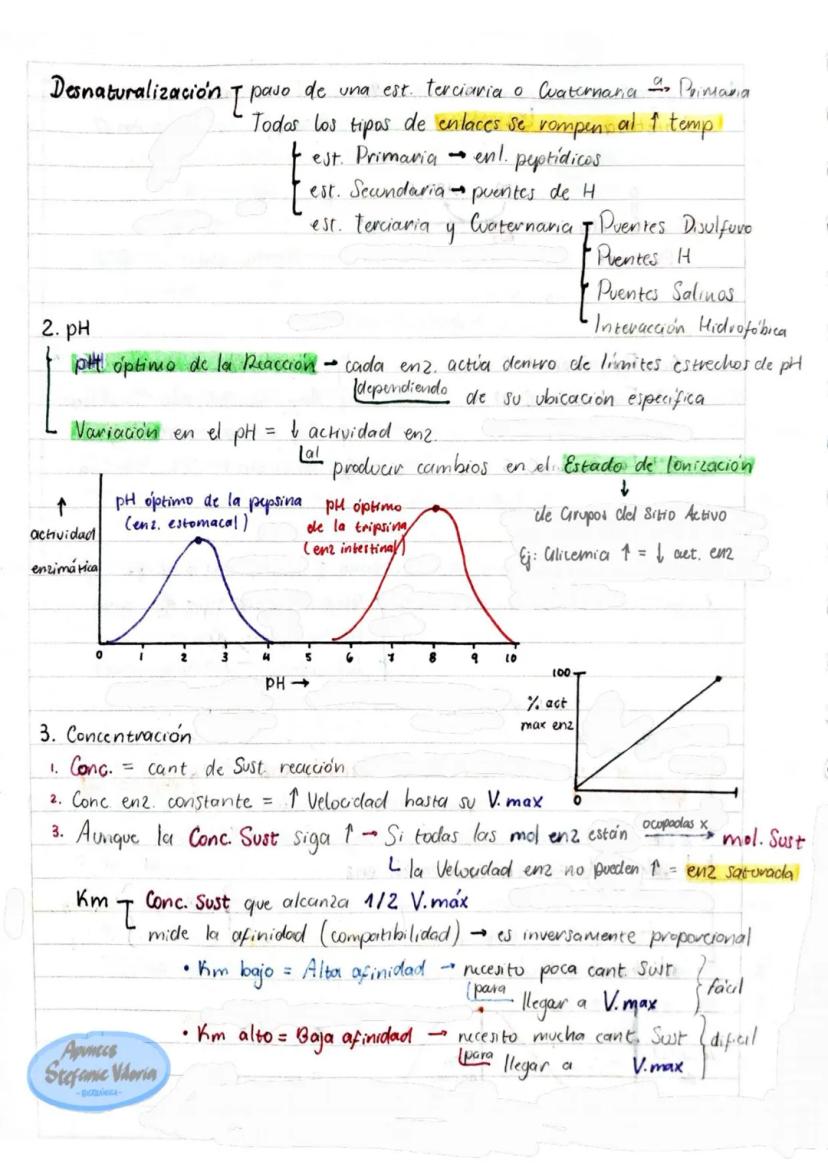 Desnaturalización paso de una est. terciaria o Cuaternaria a→ Primaria
Todos los tipos de enlaces se rompen al ↑ temp
est. Primaria → enl. peptídicos
est. Secundaria → puentes de H
est. terciaria y Cuaternaria Puentes Disulfuro
Puentes H
Puentes Salinos
Interacción Hidrofóbica
2. pH
pH óptimo de la Reacción → cada enz. actúa dentro de límites estrechos de pH
dependiendo de su ubicación específica
Variación en el pH = ↓ actividad enz.
al producir cambios en el Estado de Ionización
↓
de Grupos del Sitio Activo
Ej: Glicemia ↑ = ↓ act. enz
↑
actividad
enzimática
pH óptimo de la pepsina
(enz. estomacal)
pH óptimo
de la tripsina
(enz intestinal)
0 1 2 3 4 5 6 7 8 9 10
pH →
100
% act
max enz
0
3. Concentración
1. Conc. = cant. de Sust. reacción
2. Conc enz. constante = ↑ Velocidad hasta su V.max
3. Aunque la Conc. Sust siga ↑ → Si todas las mol enz están ocupadas x → mol. Sust
la Velocidad enz no pueden ↑ = enz saturada
Km Conc. Sust que alcanza 1/2 V.máx
mide la afinidad (compatibilidad) → es inversamente proporcional
• Km bajo = Alta afinidad → necesito poca cant. Sust
para llegar a V.max
fácil
• Km alto = Baja afinidad → necesito mucha cant. Sust
para llegar a V.max
difícil
Apuntes
Stefanie Viloria